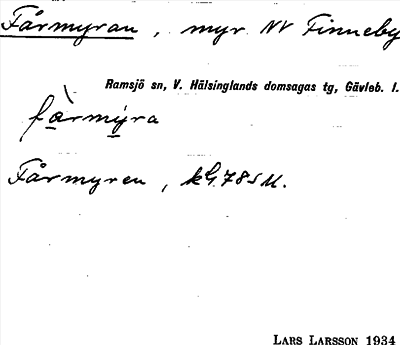 Fårmyran, myr NV Finneby
Ramsjö sn, V. Hälsinglands domsagas tg, Gävleb. l.
fàrmýra
Fårmyren, kG.785M.
LARS LARSSON 1934